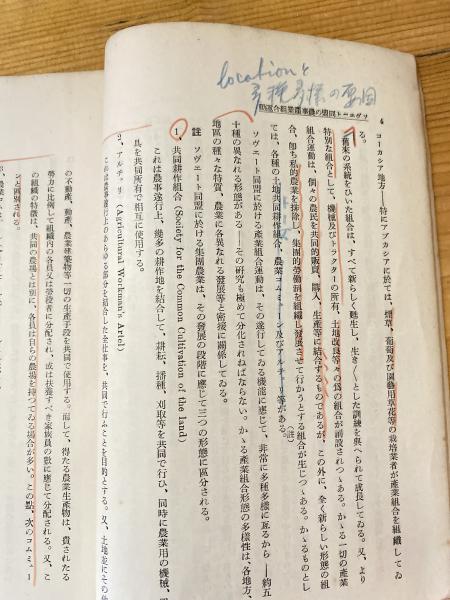 locationと
多種多様の要因
ソヴエート同盟の農事産業組合運動
4
コーカシア地方——特にアブカシアに於ては、煙草、葡萄及び園藝用草花等の栽培業者が産業組合を組織してゐ
る。
舊來の系統をひいた組合は、すべて新らしく甦生し、生き〱とした訓練を與へられて成長してゐる。又、より
特別な組合として、機械及びトラクターの所有、土地改良等々の爲の組合が創設されつゝある。かゝる一切の産業
組合運動は、個々の農民を共同的販賣、購入、生産等に結合するものであるが、この外に、全く新らしい形態の組
合、卽ち私的農業を排除し、集團的勞働制を組織し發展させて行かうとする組合が生じつゝある。かゝるものとし
ては、各種の土地共同耕作組合、農業コムミユーン及びアルチエリ等がある。(註)
ソヴエート同盟に於ける産業組合運動は、その遂行してゐる機能に應じて、非常に多種多樣に亙るから——約五
十種の異なれる形態がある——その研究も極めて分化されねばならない。かゝる産業組合形態の多樣性は、各地方、
地區の種々な特質、農業に各異なれる發展等と密接に關係してゐる。
註 ソヴエート同盟に於ける集團農業は、その發展の段階に應じて三つの形態に區分される。
1、共同耕作組合(Society for the Common Cultivation of the land)
これは農事遂行上、幾多の耕作地を結合して、耕耘、播種、刈取等を共同で行ひ、同時に農業用の機械、
具を共同所有で相互に使用する。
2、アルチエリ(Agricultural Workman's Artel)
これは農事遂行上のあらゆる部分を結合した全仕事を、共同で行ふことを目的とする。又、土地並にその他
の不動産、動産、農業建築物等一切の生産手段を共同で使用する。而して、得たる農業生産物は、費された
勞力に比例して組織内の各員又は勞役者に分配され、或は扶養すべき家族員の數に應じて分配される。又、こ
の組織の特徴は、共同の農場とは別に、各員は自らの農場を持てゐる場合が多い。この點、次のコムミユー
ンと區別される。